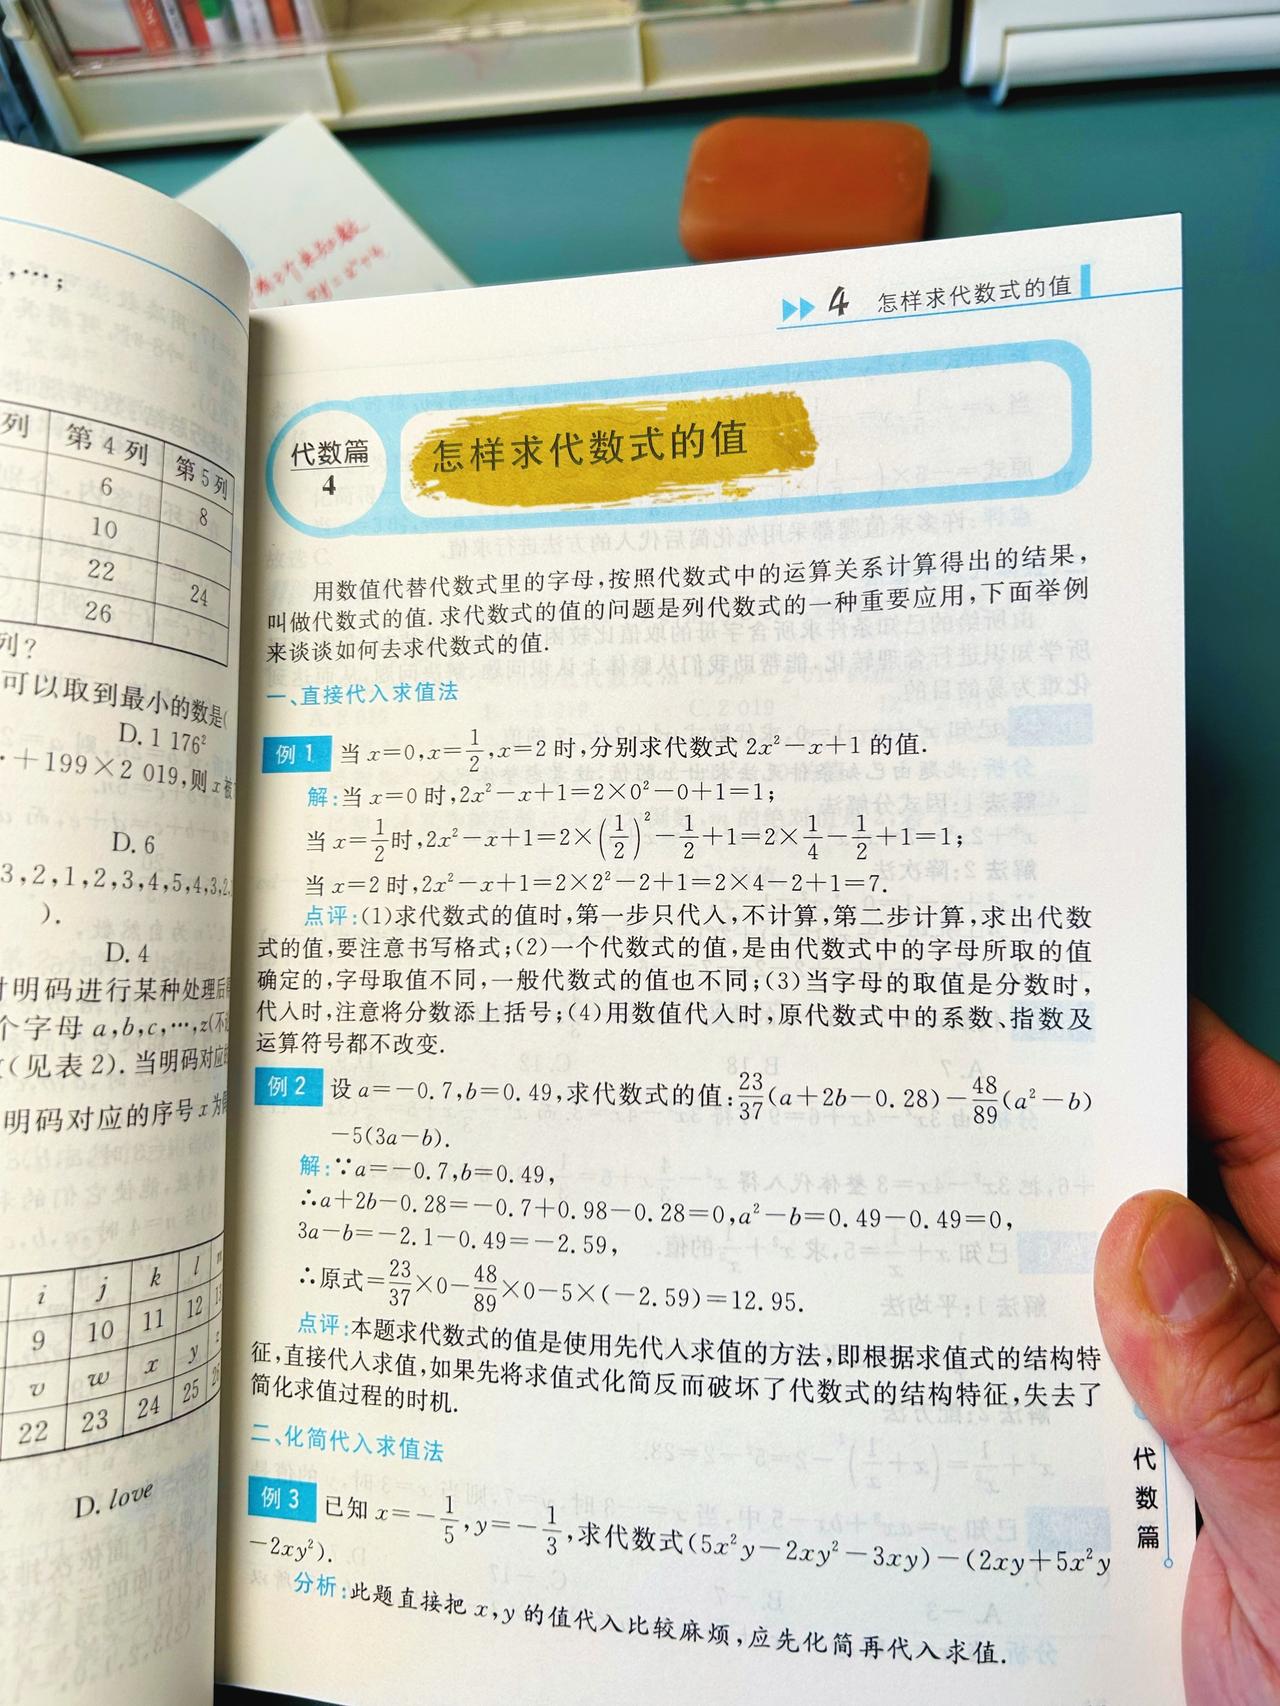 ,…;
列 第4列 第5列
6 8
10
22 24
26
列?
可以取到最小的数是(
D. 1 176²
+199×2 019,则x被
D. 6
3,2,1,2,3,4,5,4,3,2,
).
D. 4
对明码进行某种处理后
个字母a,b,c,…,z(不
(见表2).当明码对应的
明码对应的序号x为
i j k l
9 10 11 12
v w x y z
22 23 24 25
D. love
4 怎样求代数式的值
代数篇
4
怎样求代数式的值
用数值代替代数式里的字母,按照代数式中的运算关系计算得出的结果,
叫做代数式的值.求代数式的值的问题是列代数式的一种重要应用,下面举例
来谈谈如何去求代数式的值.
一、直接代入求值法
例1 当x=0,x=1/2,x=2时,分别求代数式2x²-x+1的值.
解:当x=0时,2x²-x+1=2×0²-0+1=1;
当x=1/2时,2x²-x+1=2×(1/2)²-1/2+1=2×1/4-1/2+1=1;
当x=2时,2x²-x+1=2×2²-2+1=2×4-2+1=7.
点评:(1)求代数式的值时,第一步只代入,不计算,第二步计算,求出代数
式的值,要注意书写格式;(2)一个代数式的值,是由代数式中的字母所取的值
确定的,字母取值不同,一般代数式的值也不同;(3)当字母的取值是分数时,
代入时,注意将分数添上括号;(4)用数值代入时,原代数式中的系数、指数及
运算符号都不改变.
例2 设a=-0.7,b=0.49,求代数式的值:23/37(a+2b-0.28)-48/89(a²-b)
-5(3a-b).
解:∵a=-0.7,b=0.49,
∴a+2b-0.28=-0.7+0.98-0.28=0,a²-b=0.49-0.49=0,
3a-b=-2.1-0.49=-2.59,
∴原式=23/37×0-48/89×0-5×(-2.59)=12.95.
点评:本题求代数式的值是使用先代入求值的方法,即根据求值式的结构特
征,直接代入求值,如果先将求值式化简反而破坏了代数式的结构特征,失去了
简化求值过程的时机.
二、化简代入求值法
例3 已知x=-1/5,y=-1/3,求代数式(5x²y-2xy²-3xy)-(2xy+5x²y
-2xy²).
分析:此题直接把x,y的值代入比较麻烦,应先化简再代入求值.
代数篇